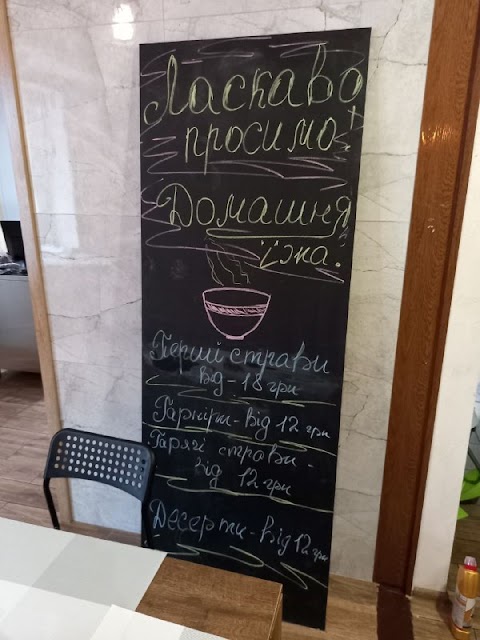 Ласкаво
просимо!
Домашня
їжа.
Перші страви
від - 18 грн
Гарніри - від 12 грн
Гарячі страви -
від 12 грн
Десерти - від 12 грн